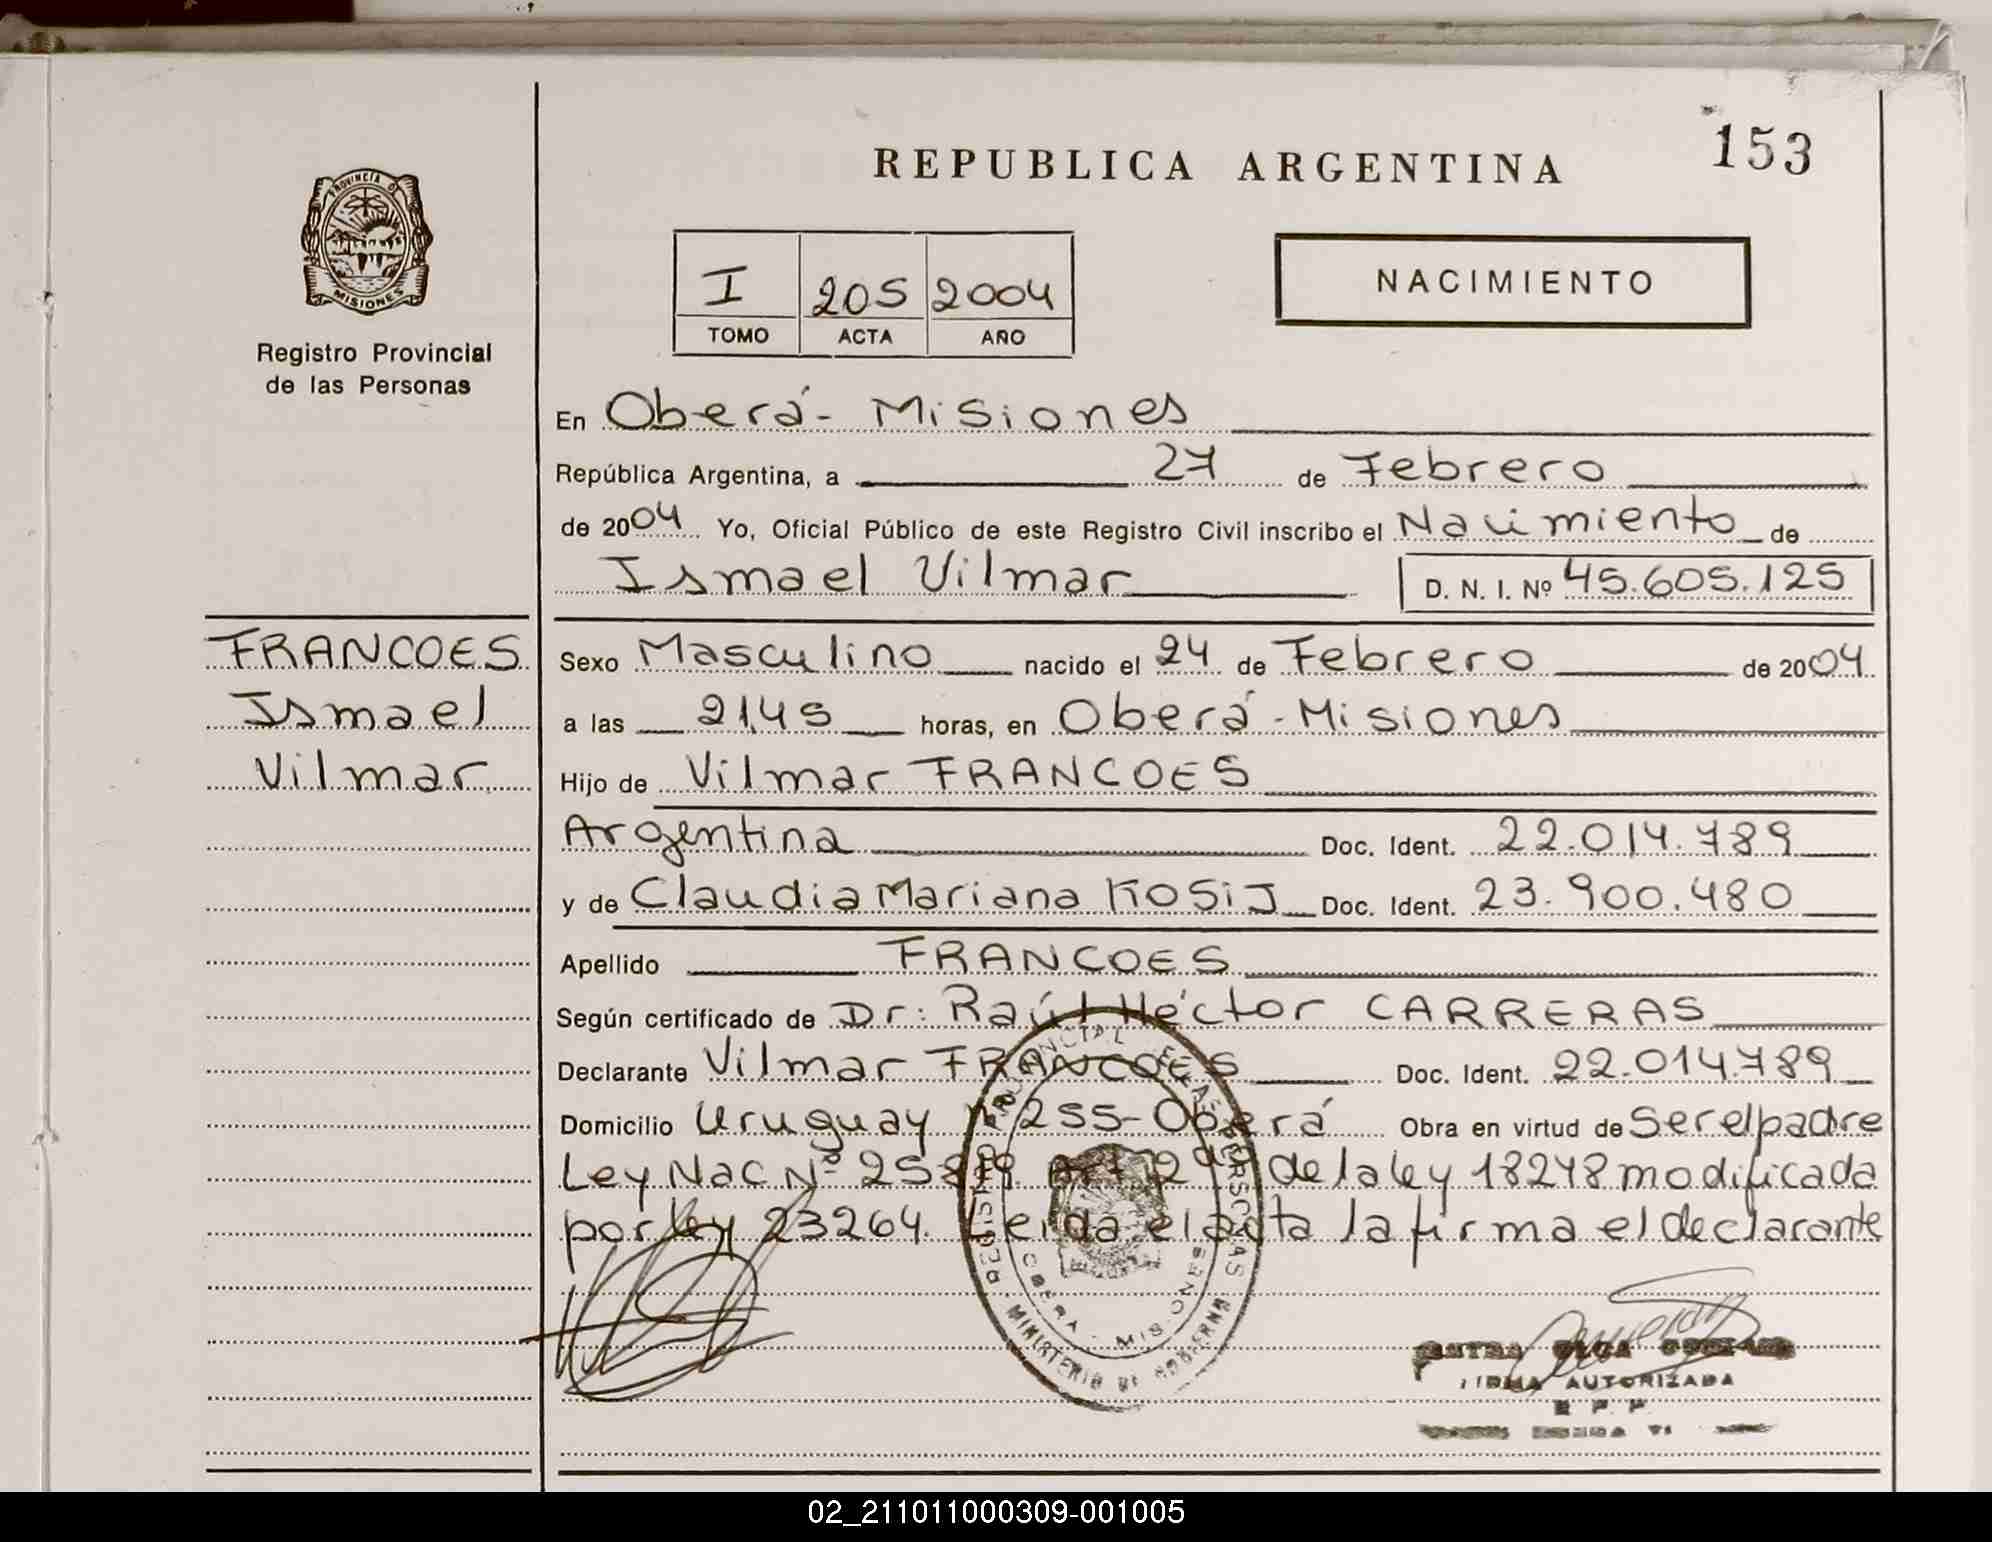 153
REPUBLICA ARGENTINA
PROVINCIA DE
MISIONES
Registro Provincial
de las Personas
I 205 2004
TOMO ACTA AÑO
NACIMIENTO
En Oberá - Misiones
República Argentina, a 27 de Febrero
de 2004 Yo, Oficial Público de este Registro Civil inscribo el Nacimiento de
Ismael Vilmar D. N. I. Nº 45.605.125
FRANCOES
Ismael
Vilmar
Sexo Masculino nacido el 24 de Febrero de 2004
a las 21,45 horas, en Oberá - Misiones
Hijo de Vilmar FRANCOES
Argentina Doc. Ident. 22.014.789
y de Claudia Mariana KOSiJ Doc. Ident. 23.900.480
Apellido FRANCOES
Según certificado de Dr: Raúl Héctor CARRERAS
Declarante Vilmar FRANCOES Doc. Ident. 22.014.789
Domicilio Uruguay Nº 255 - Oberá Obra en virtud de Ser el padre
Ley Nac Nº 25819 Art 2º de la ley 18248 modificada
por ley 23264. Leida el acta la firma el declarante
OBERA - MISIONES
MINISTERIO DE GOBIERNO
FIRMA AUTORIZADA
02_211011000309-001005